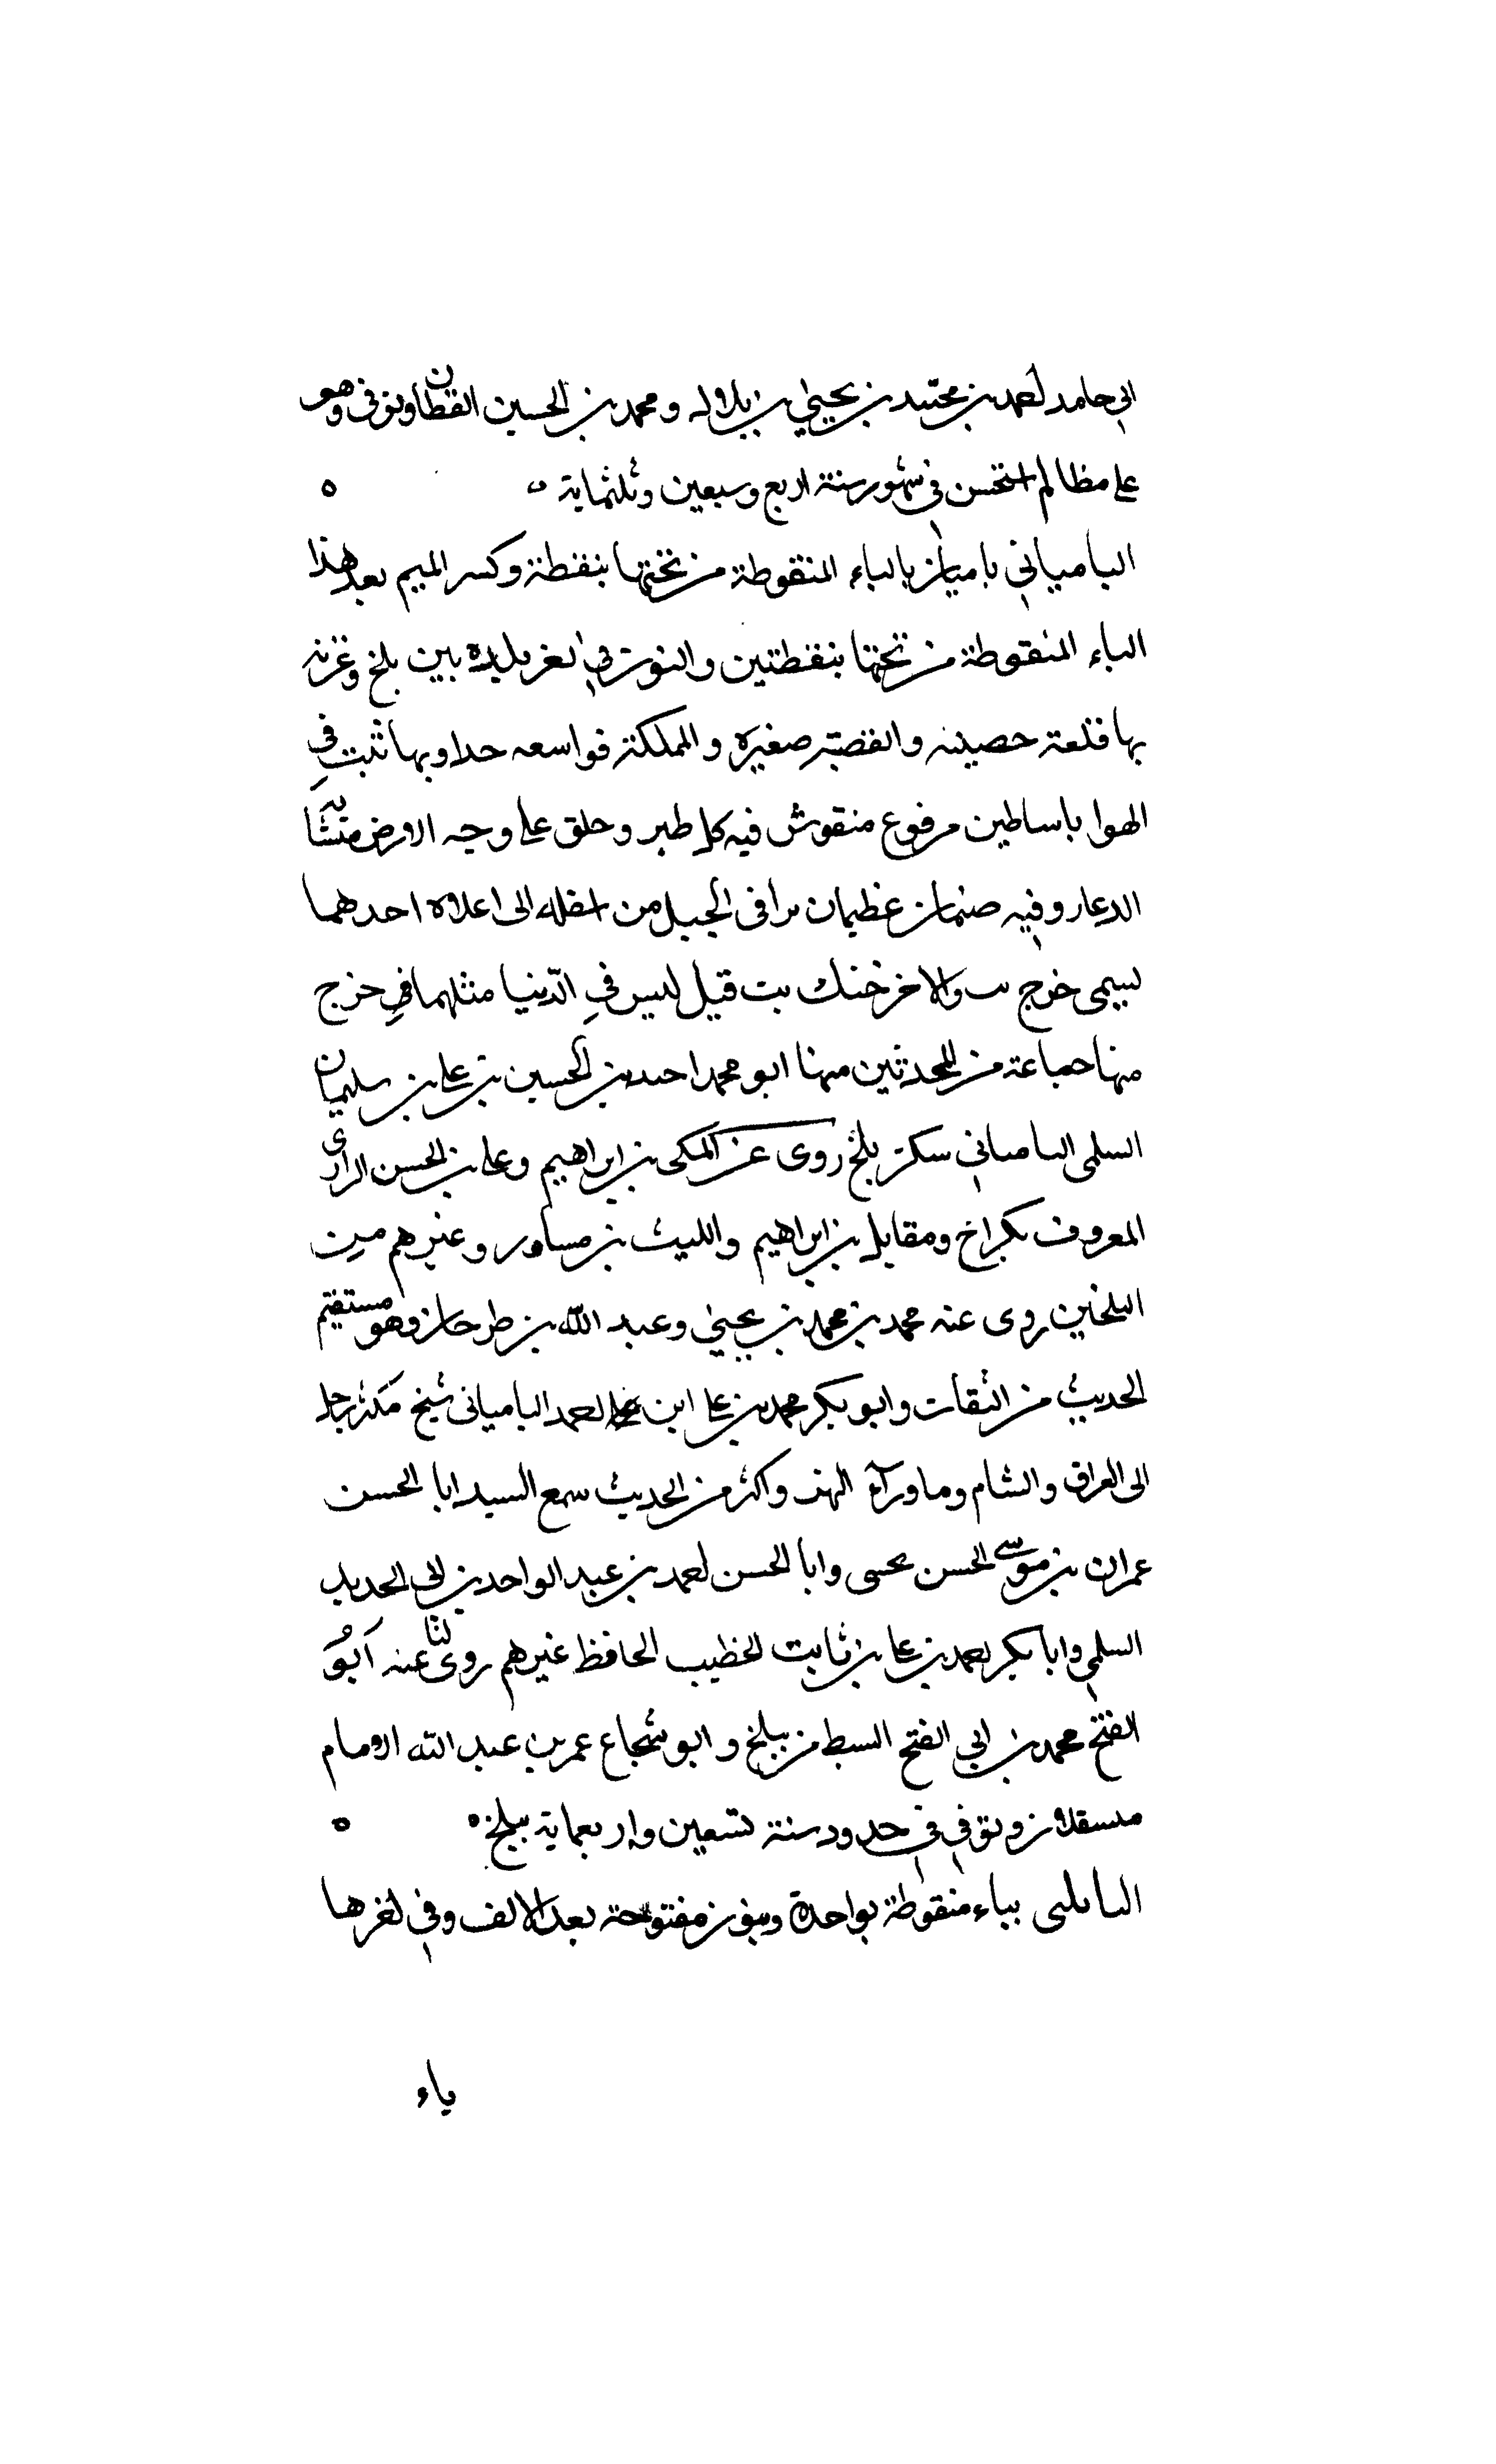 ابي حامد احمد بن محمد بن يحيى بن بلال و محمد بن الحسين القطان وتوفى وهو
على مظالم في شهور سنة اربع وسبعين وثلثماية
الباميانى باميان بالباء المنقوطة من تحتها بنقطة وكسر الميم بعد هذا
الياء المنقوطة من تحتها بنقطتين والنون فى اخر بلدة بين بلخ وغزنه
بها قلعة حصينه والقصبة صغيره و المملكة فواسعه جدا وبها بيت في
الهوا باساطين مرفوع منقوش فيه كل طير و خلق على وجه الارض
الدعار وفيه صنمان عظيمان في الجبل من اسفله الى اعلاه احدهما
يسمى خرج بت والاخر خنك بت قيل ليس في الدنيا مثلهما خرج
منها جماعة من المحدثين منها ابو محمد احمد بن الحسين بن على بن سليمان
السلمى الباميانى سكن بلخ روى عن المكى بن ابراهيم وعلى بن الحسن الرازى
المعروف بكراخ ومقاتل بن ابراهيم والليث بن مساور وغيرهم من
البلخين روى عنه محمد بن محمد بن يحيى وعبد الله بن طرخان وهو مستقيم
الحديث من الثقات وابو بكر محمد بن على ابن احمد الباميانى شيخ مكثر رحل
الى العراق والشام وما ورآء النهر واكثر من الحديث سمع السيد ابا الحسن
عمران بن موسى الحسن يحيى وابا الحسن احمد بن عبد الواحد بن ابى الحديد
السلمى وابا بكر احمد بن على بن ثابت الخطيب الحافظ غيرهم روى لنا عنه ابو
الفتح محمد بن ابى الفتح البسط من ببلخ وابو شجاع عمر بن عبد الله الامام
وتوفى فى حدود سنة تسعين واربعماية ببلخ
ببناء منقوطة بواحدة وبنون مفتوحة بعد الالف وفي اخرها
ياء